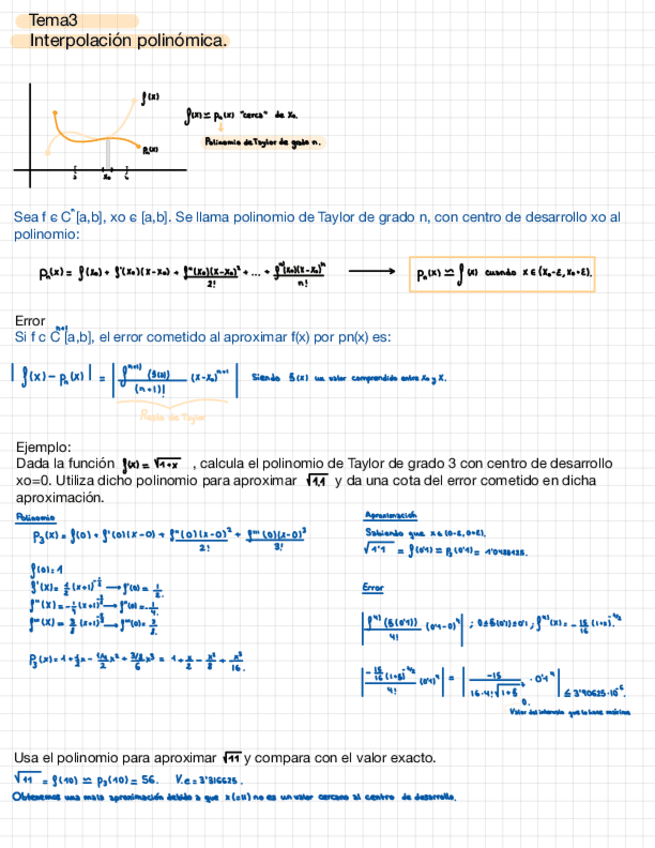 Tema3
Interpolación polinómica.
f(x)
f(x) ≃ pₙ(x) "cerca" de x₀.
Polinomio de Taylor de grado n.
pₙ(x)
x₀
Sea f ϵ Cⁿ[a,b], xo ϵ [a,b]. Se llama polinomio de Taylor de grado n, con centro de desarrollo xo al
polinomio:
pₙ(x) = f(x₀) + f'(x₀)(x-x₀) + f''(x₀)(x-x₀)²/2! + ... + fⁿ(x₀)(x-x₀)ⁿ/n! ⟶ pₙ(x) ≃ f(x) cuando x ϵ (x₀-ε, x₀+ε).
Error
Si f c Cⁿ⁺¹[a,b], el error cometido al aproximar f(x) por pn(x) es:
|f(x) - pₙ(x)| = |fⁿ⁺¹⁾(ξ(x))/(n+1)! (x-x₀)ⁿ⁺¹| Siendo ξ(x) un valor comprendido entre x₀ y x.
Resto de Taylor
Ejemplo:
Dada la función f(x) = √1+x , calcula el polinomio de Taylor de grado 3 con centro de desarrollo
xo=0. Utiliza dicho polinomio para aproximar √1,1 y da una cota del error cometido en dicha
aproximación.
Polinomio
P₃(x) = f(0) + f'(0)(x-0) + f''(0)(x-0)²/2! + f'''(0)(x-0)³/3!
f(0) = 1
f'(x) = 1/2 (x+1)^-1/2 ⟶ f'(0) = 1/2.
f''(x) = -1/4 (x+1)^-3/2 ⟶ f''(0) = -1/4.
f'''(x) = 3/8 (x+1)^-5/2 ⟶ f'''(0) = 3/8.
P₃(x) = 1 + 1/2 x - 1/4/2 x² + 3/8/6 x³ = 1 + x/2 - x²/8 + x³/16.
Aproximación
Sabiendo que x ϵ (0-ε, 0+ε).
√1'1 = f(0'1) ≃ p₃(0'1) = 1'0488125.
Error
|f⁴⁾(ξ(0'1))/4! (0'1-0)⁴| ; 0 ≤ ξ(0'1) ≤ 0'1 ; f⁴⁾(x) = -15/16 (1+x)^-7/2
|-15/16 (1+ξ)^-7/2/4! (0'1)⁴| = |-15/16·4!√1+ξ⁷ · 0'1⁴| ≤ 3'90625·10⁻⁶.
0.
Valor del intervalo que lo hace máximo
Usa el polinomio para aproximar √11 y compara con el valor exacto.
√11 = f(10) ≃ p₃(10) = 56. V.e = 3'316625.
Obtenemos una mala aproximación debido a que x(=11) no es un valor cercano al centro de desarrollo.